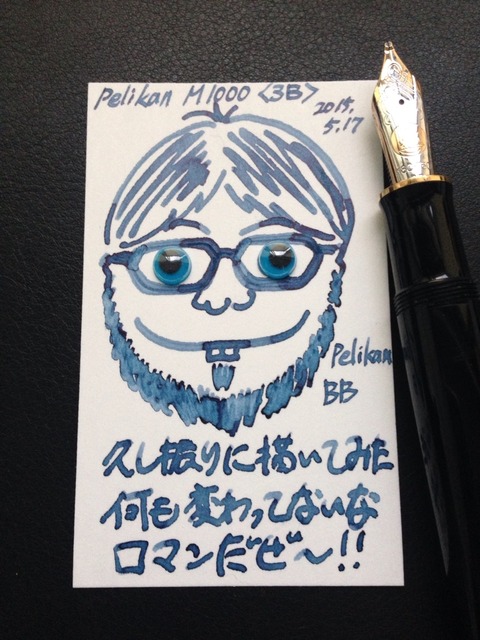 Pelikan M1000 <3B>
2015.
5.17
Pelikan
BB
久し振りに描いてみた
何も変わってないな
ロマンだぜ〜!!